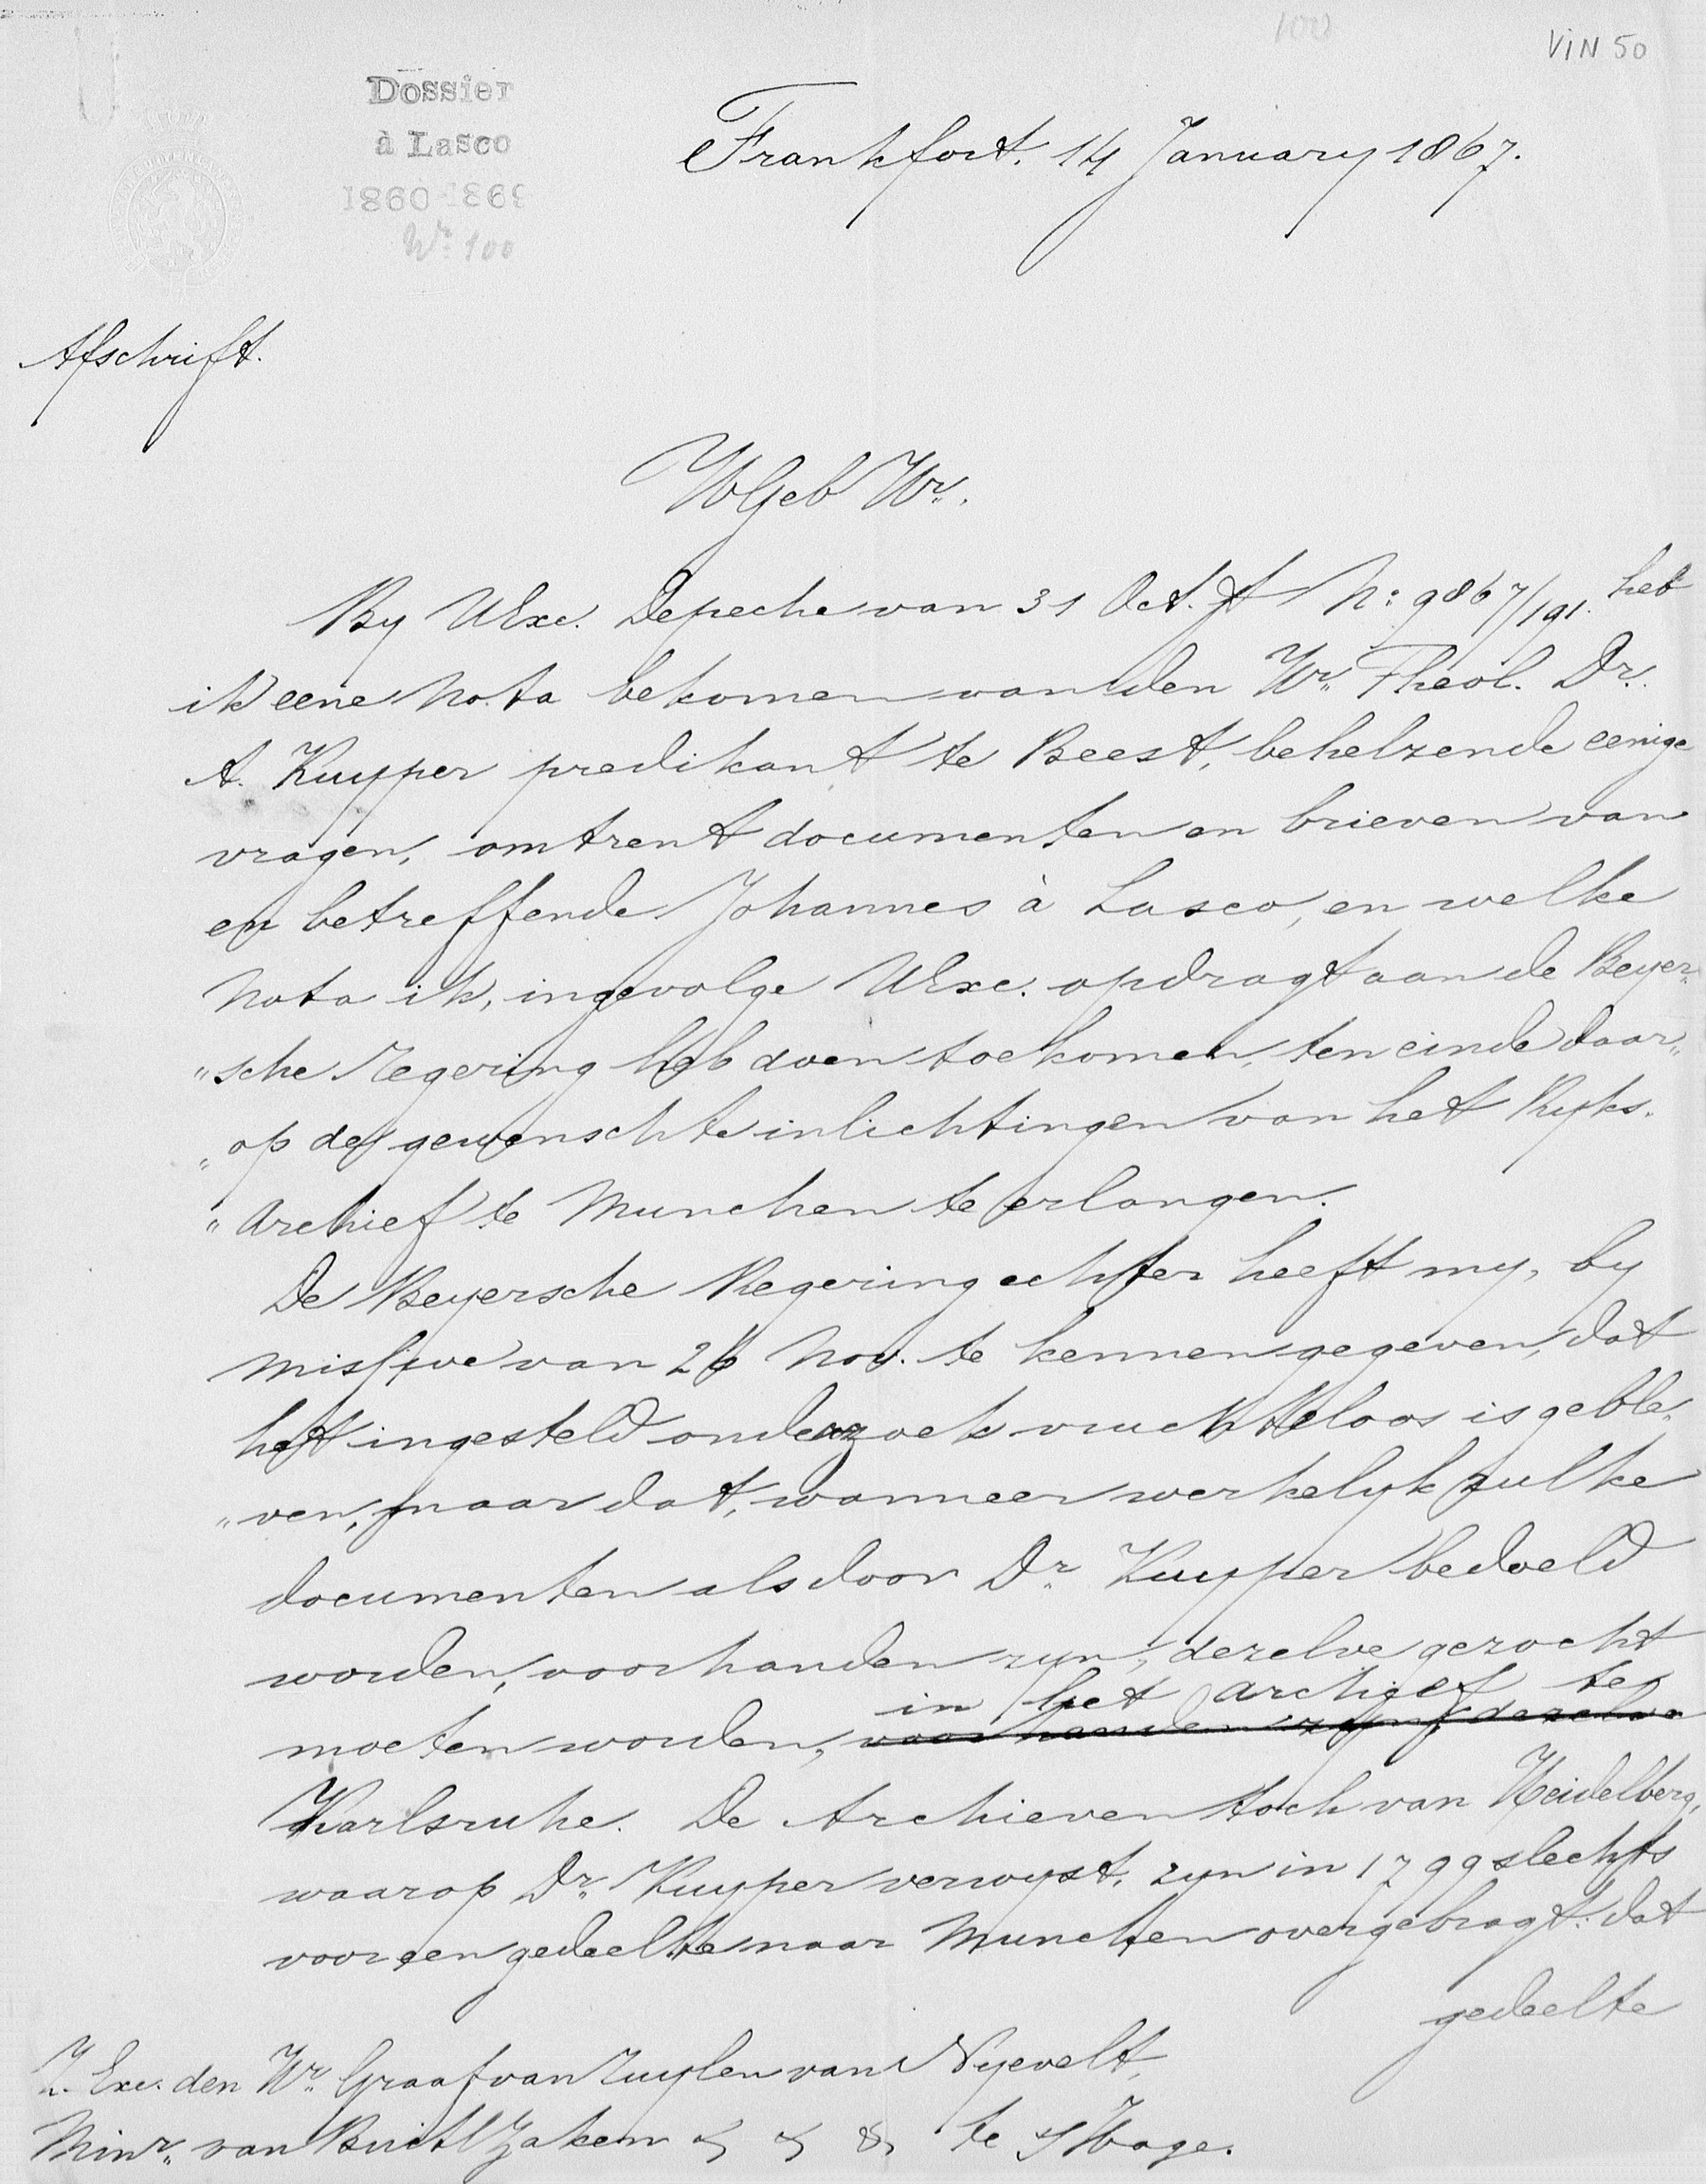 100
VIN 50
Dossier
à Lasco
1860-1869
No. 100
Frankfort. 14 January 1867.
Afschrift.
WGeb Hr.
By UExc. Depeche van 31 Oct. jl No: 9867/191. heb
ik eene Nota bekomen van den Hr. Theol. Dr.
A. Kuyper predikant te Beest, behelzende eenige
vragen, omtrent documenten en brieven van
en betreffende Johannes à Lasco, en welke
Nota ik, ingevolge UExc. opdragt aan de Beyer„
„sche Regering heb doen toekomen, ten einde daar„
„op de gewenschte inlichtingen van het Ryks„
„Archief te Munchen te erlangen.
De Beyersche Regering echter heeft my, by
missive van 26 Nov. te kennen gegeven, dat
het ingesteld onderzoek vruchteloos is geble„
„ven, maar dat, wanneer werkelyk zulke
documenten als door Dr. Kuyper bedoeld
worden, voorhanden zyn, dezelve gezocht
in het archief te
moeten worden, voorhanden zyn, dezelve
Karlsruhe. De Archieven toch van Heidelberg,
waarop Dr. Kuyper verwyst, zyn in 1799 slechts
voor een gedeelte naar Munchen overgebragt: dat
gedeelte
Z. Exc. den Hr. Graaf van Zuylen van Nyevelt,
Minr. van Buitl Zaken & & & te sHage.